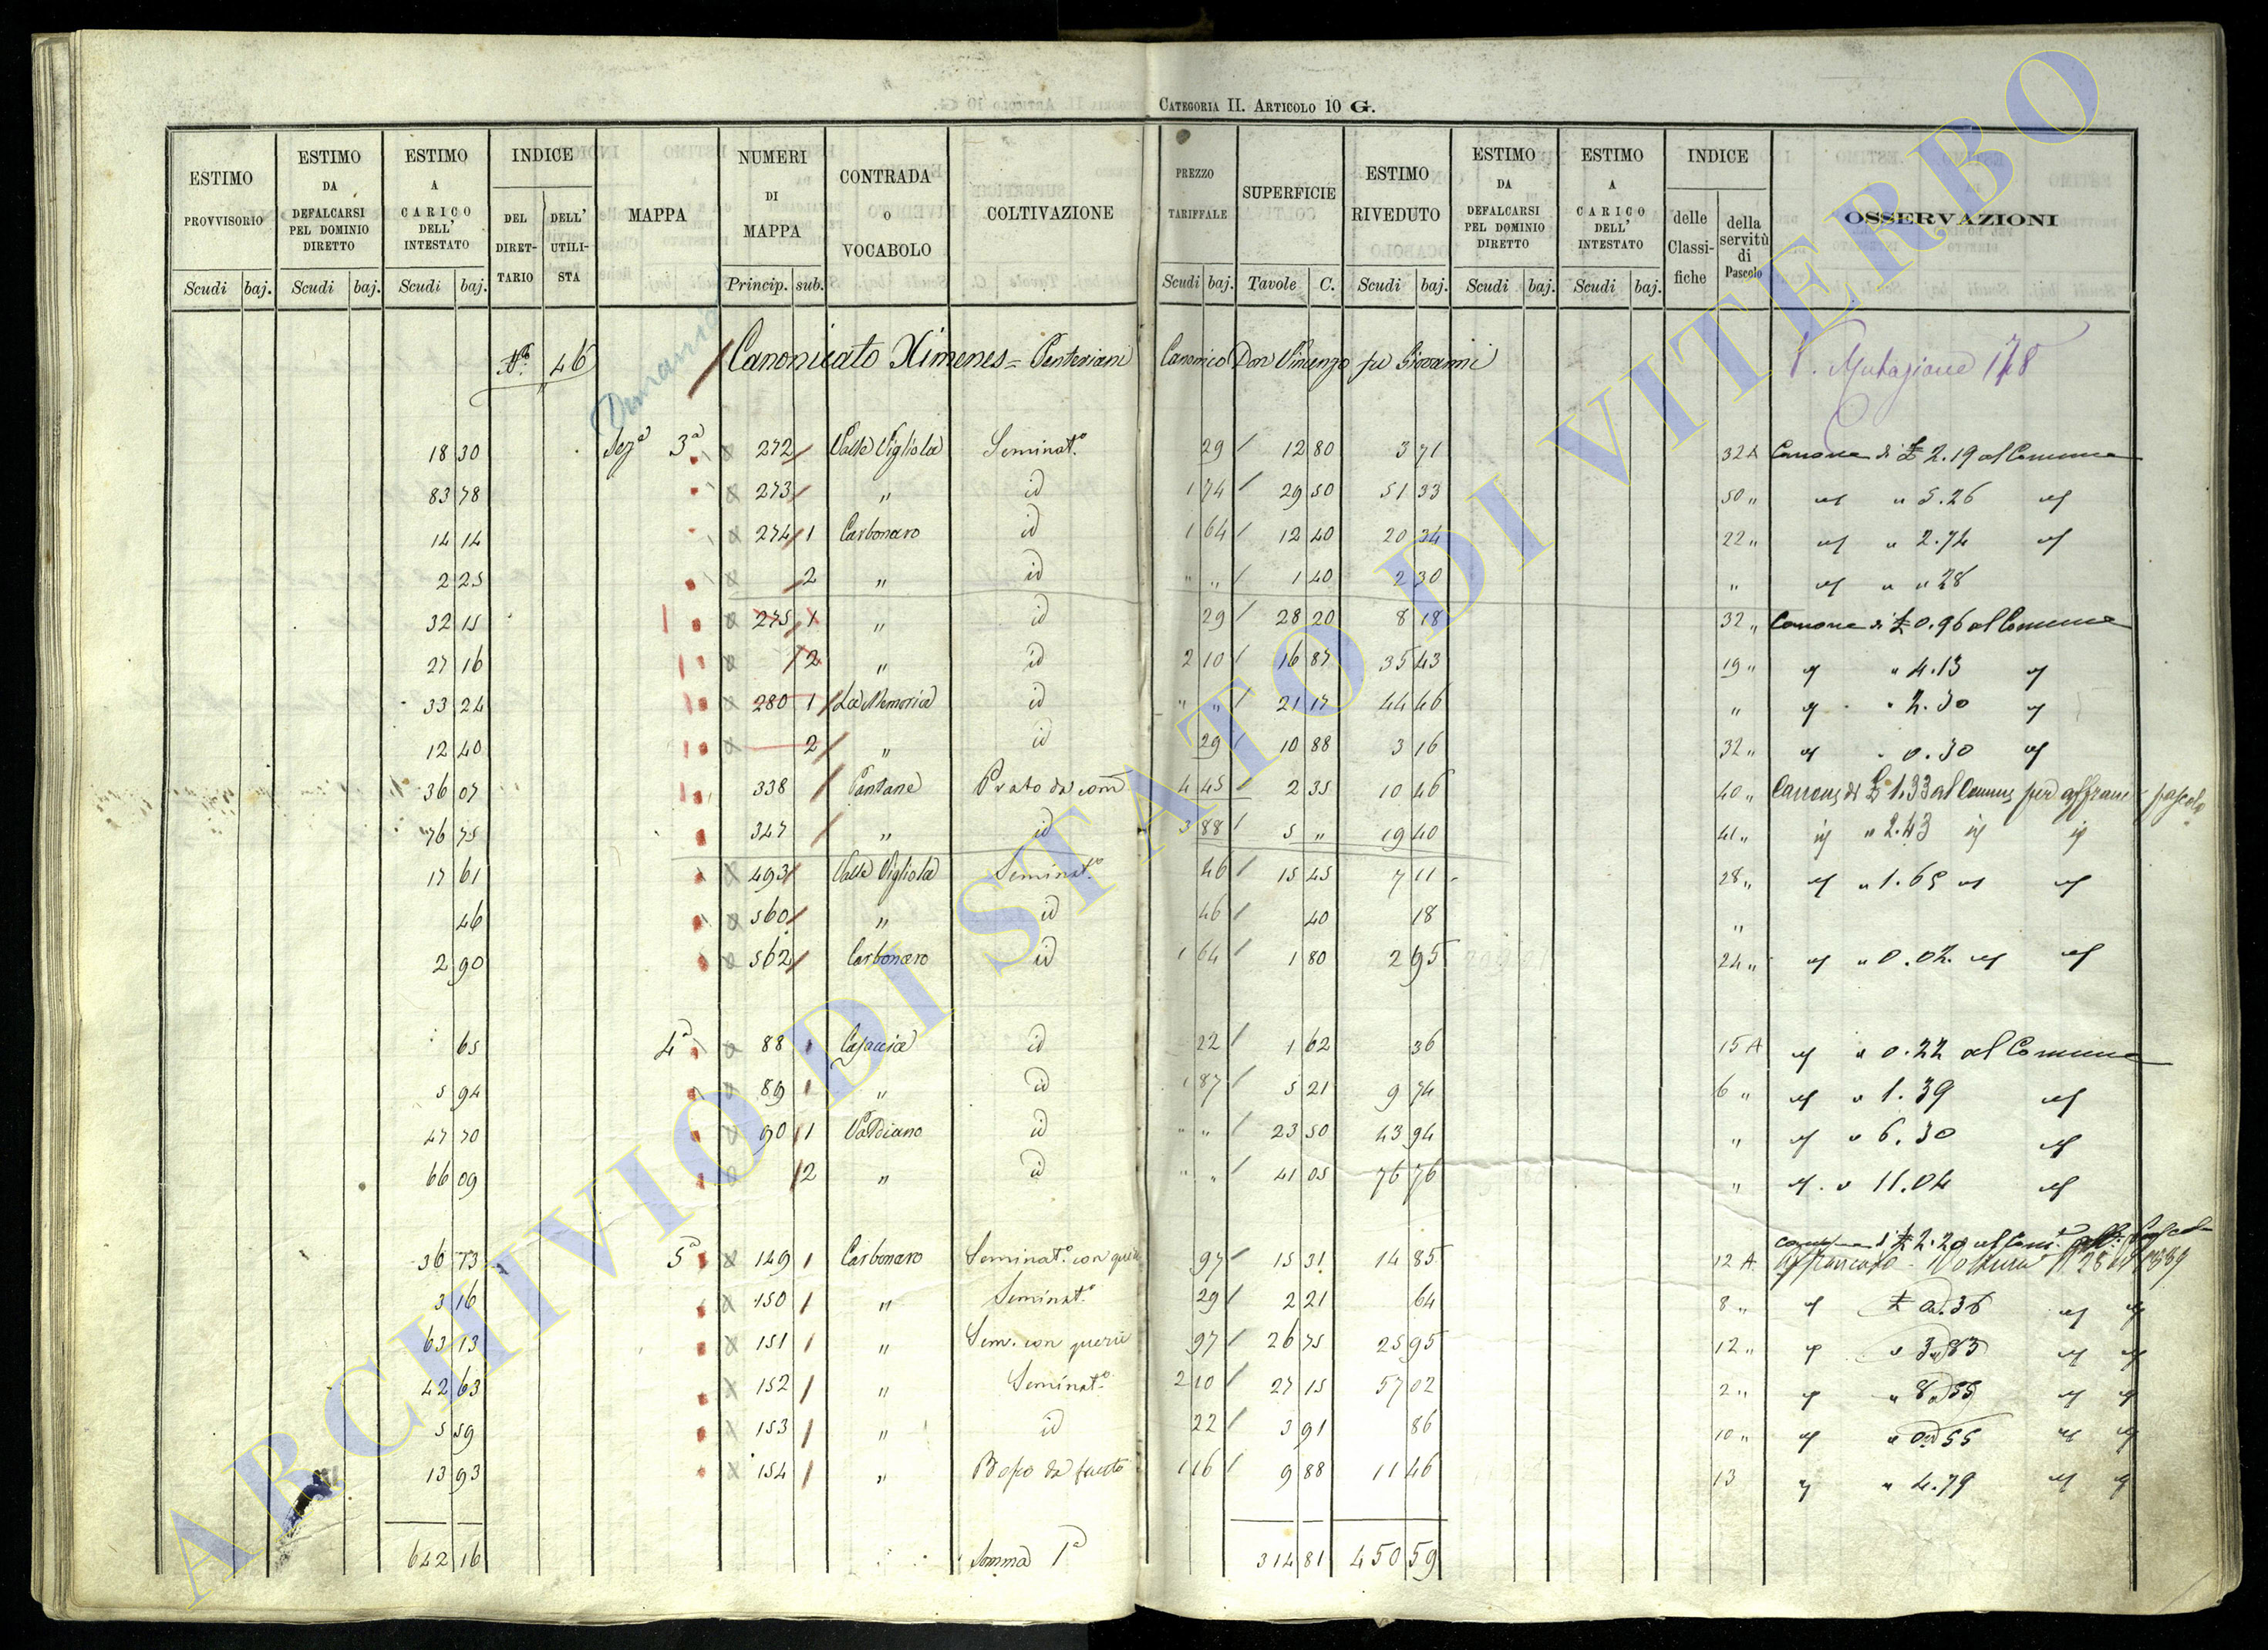 CATEGORIA II. ARTICOLO 10 G.
ESTIMO PROVVISORIO | ESTIMO DA DEFALCARSI PEL DOMINIO DIRETTO | ESTIMO A CARICO DELL' INTESTATO | INDICE DEL DIRETTARIO | DELL' UTILISTA | MAPPA | NUMERI DI MAPPA | CONTRADA O VOCABOLO | COLTIVAZIONE | PREZZO TARIFFALE | SUPERFICIE | ESTIMO RIVEDUTO | ESTIMO DA DEFALCARSI PEL DOMINIO DIRETTO | ESTIMO A CARICO DELL' INTESTATO | INDICE delle Classifiche | della servitù di Pascolo | OSSERVAZIONI
Scudi baj. Scudi baj. Scudi baj. Princip. sub. Scudi baj. Tavole C. Scudi baj. Scudi baj. Scudi baj.
N.° 46 Canonicato Ximenes = Penteriani Canonico Don Vincenzo fu Giovanni V. Mutazione 178
18 30 Sez.a 3a 272 Valle Vigliola Seminat.o 29 12 80 3 71 32 A Canone di £ 2.19 al Comune
83 78 273 " id 1 74 29 50 51 33 50 " " 5.26
14 14 274 1 Carbonaro id 1 64 12 40 20 34 22 " " 2.74
2 25 2 " id " " 1 40 2 30 " " " 28
32 15 275 1 " id 29 28 20 8 18 32 " Canone di £ 0.96 al Comune
27 16 2 " id 2 10 16 87 35 43 19 " " 4.13
33 24 280 1 La Memoria id " " 21 17 44 46 " " 2.30
12 40 2 " id 29 10 88 3 16 32 " 0.30
36 07 338 Pantane Prato da com 4 45 2 35 10 46 40 " Canone di £ 1.33 al Comune per affranc pascolo
76 75 347 " id 3 88 5 " 19 40 41 " " 2.43
17 61 493 Valle Vigliola Seminat.o 46 15 45 7 11 28 " " 1.65
46 560 " id 46 40 18 "
2 90 562 Carbonaro id 1 64 1 80 2 95 24 " " 0.02
65 4a 88 Casaccia id 22 1 62 36 15 A " 0.22 al Comune
5 94 89 " id 1 87 5 21 9 74 6 " " 1.39
47 70 90 1 Valdiano id " " 23 50 43 94 " " 6.30
66 09 2 " id " " 41 05 76 76 " " 11.04
36 73 5a 149 Carbonaro Seminat.o con querc 97 15 31 14 85 12 A
3 16 150 " Seminat.o 29 2 21 64 8 " £ 0.36
63 13 151 " Sem. con querc 97 26 75 25 95 12 " " 3.83
42 63 152 " Seminat.o 2 10 27 15 57 02 2 " " 8.55
5 59 153 " id 22 3 91 86 10 " " 0.55
13 93 154 " Bosco da frutto 1 16 9 88 11 46 13 " 4.79
642 16 Somma 1a 314 81 450 59
ARCHIVIO DI STATO DI VITERBO